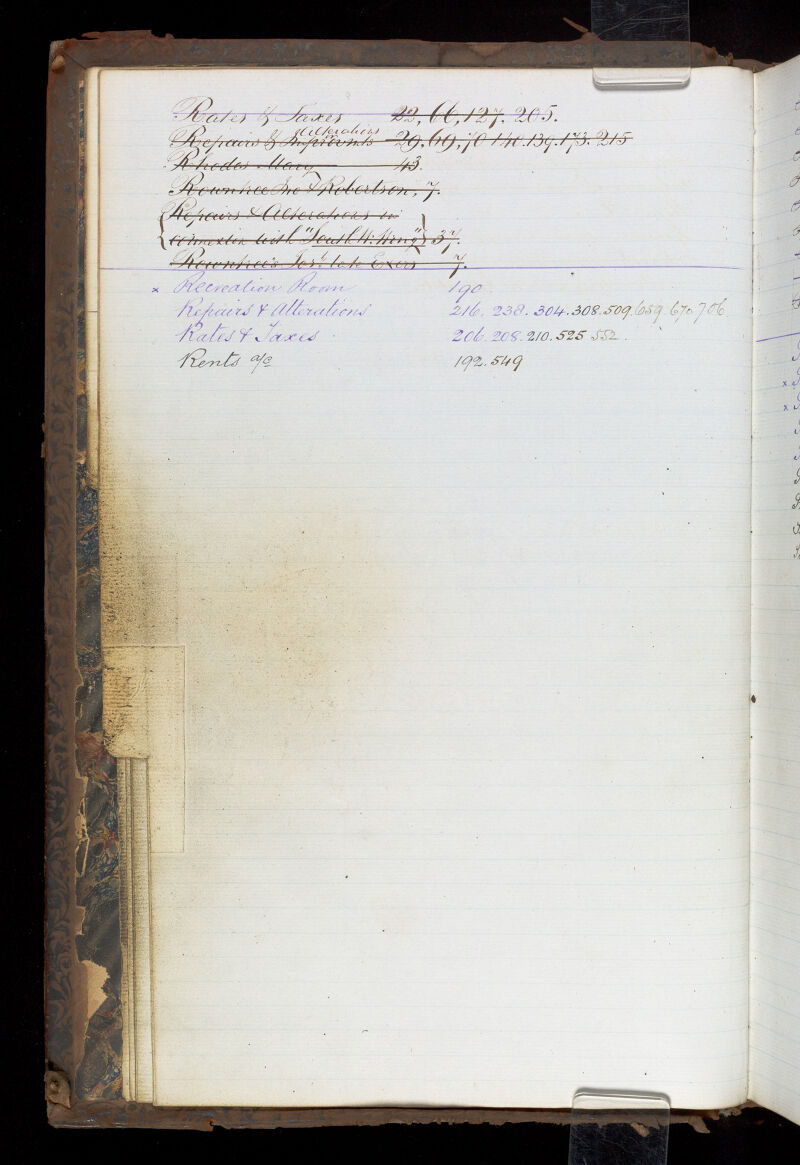 Rates & Taxes 22, 66, 127. 205.
Alterations
Repairs & Improvnts 29, 69, 70 140. 139. 173. 215
Rhodes Mary 43.
Rowntree Jno & Robertson, 7.
Repairs & Alterations in
connexion with "South W. Wing" 37.
Rowntree's Josh. late Exors 7.
x Recreation Room 190
Repairs & Alterations 216. 238. 304. 308. 509. 659. 670 706
Rates & Taxes 206. 208. 210. 525 552.
Rents a/c 192. 549